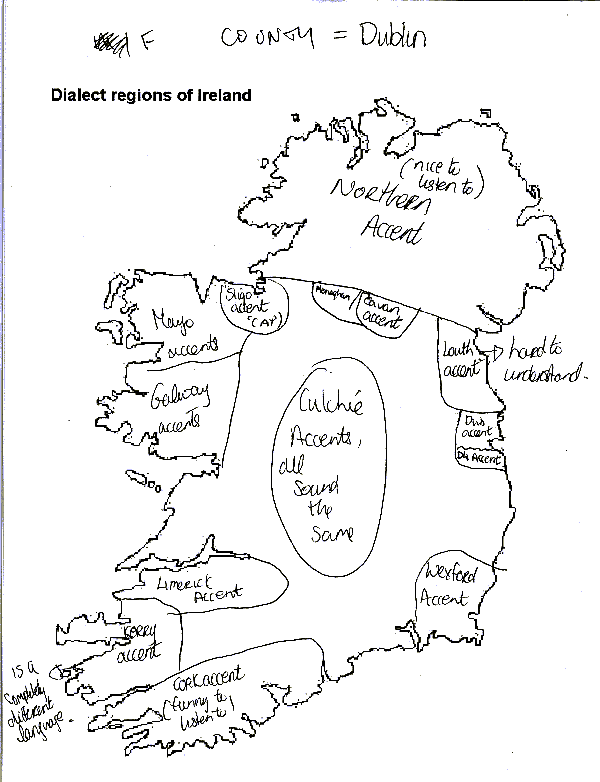 F COUNTY = Dublin
Dialect regions of Ireland
(nice to
listen to)
Northern
Accent
Sligo
accent
(AY)
Monaghan
Cavan
accent
Mayo
accents
Louth
accent
hard to
understand.
Galway
accents
Culchié
Accents,
all
Sound
the
Same
Dub
accent
Accent
Limerick
Accent
Wexford
Accent
Kerry
accent
is a
completely
different
language.
Cork accent
(funny to
listen to)